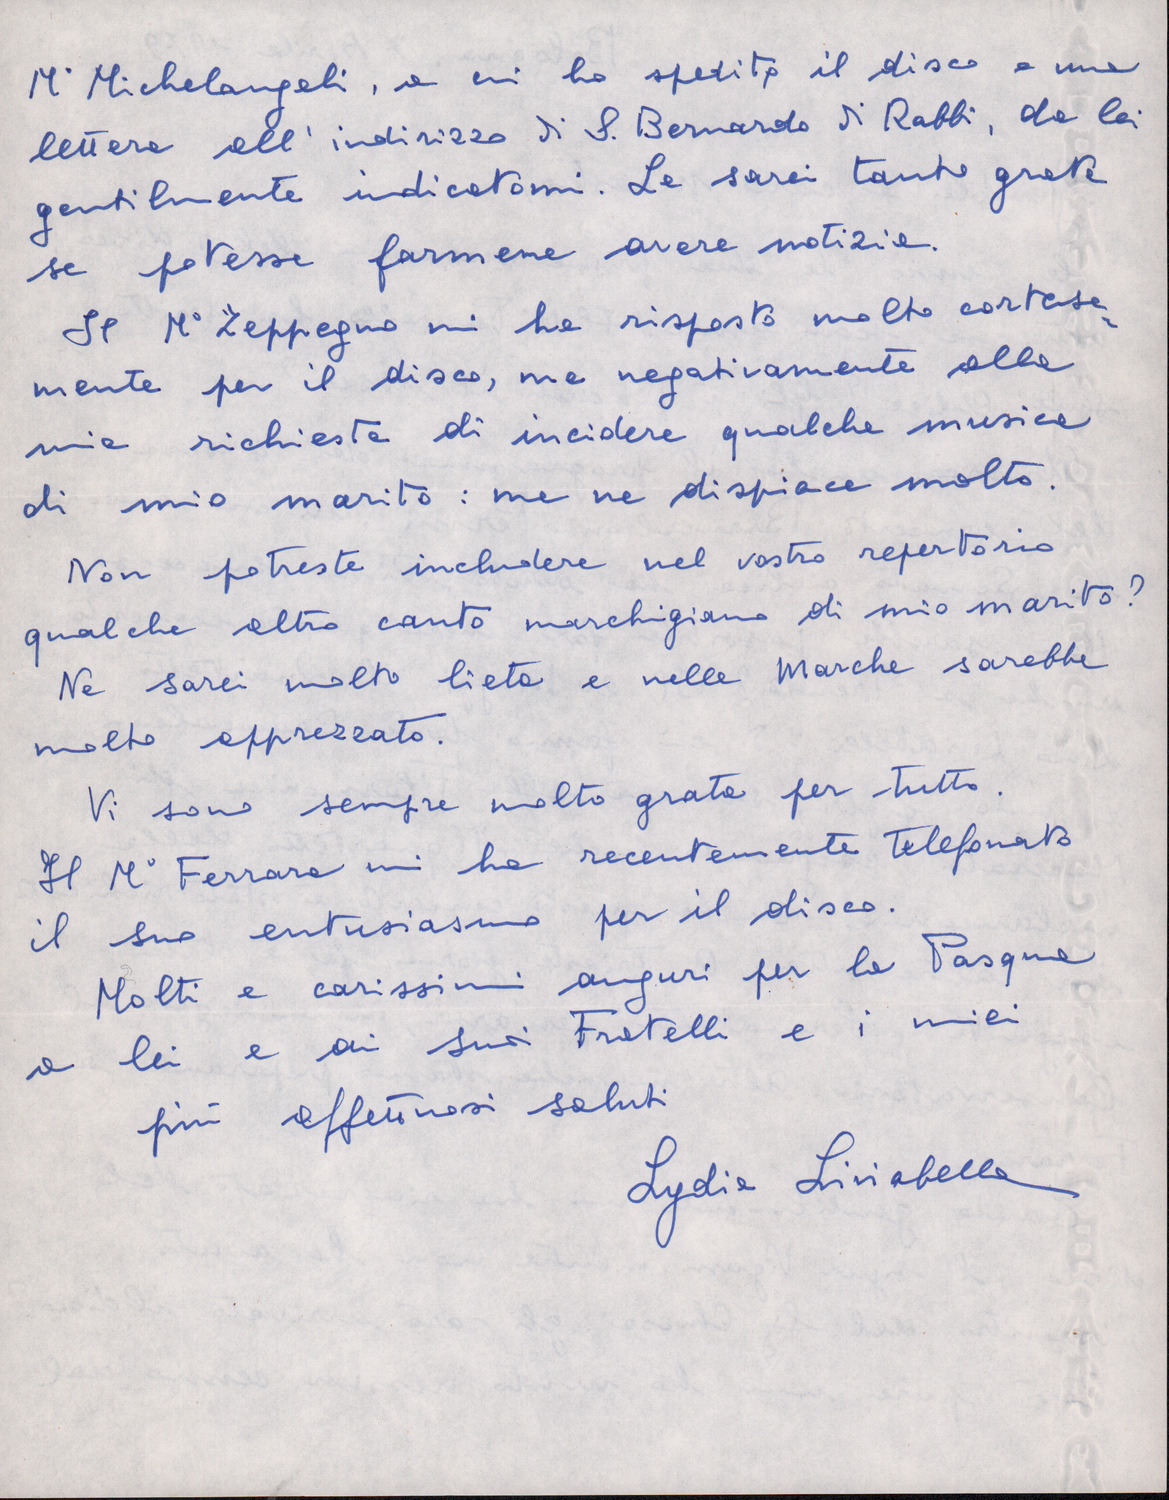 M° Michelangeli, a cui ho spedito il disco e una
lettera all'indirizzo di S. Bernardo di Rabbi, da lei
gentilmente indicatomi. Le sarei tanto grata
se potesse farmene avere notizie.
Il M° Zeppegno mi ha risposto molto cortese-
mente per il disco, ma negativamente alla
mia richiesta di incidere qualche musica
di mio marito: me ne dispiace molto.
Non potreste includere nel vostro repertorio
qualche altro canto marchigiano di mio marito?
Ne sarei molto lieta e nelle Marche sarebbe
molto apprezzato.
Vi sono sempre molto grata per tutto.
Il M° Ferrara mi ha recentemente telefonato
il suo entusiasmo per il disco.
Molti e carissimi auguri per la Pasqua
a lei e ai suoi Fratelli e i miei
più affettuosi saluti
Lydia Liviabella